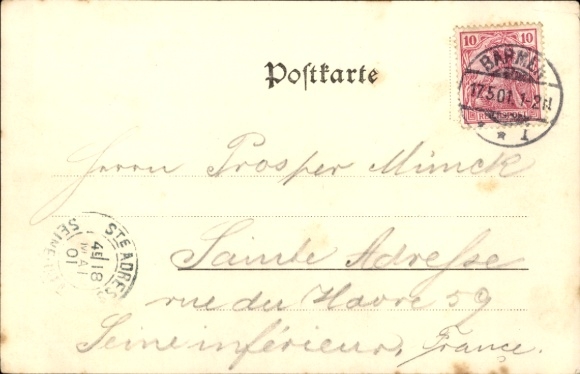 10 10
REICHSPOST
BARMEN
17.5.01. 1-2N
* 1
Postkarte
Herrn Prosper Minck
Sainte Adresse
rue du Havre 59
Seine inférieur, France.
STE ADRESSE
4E 18
MAI
01